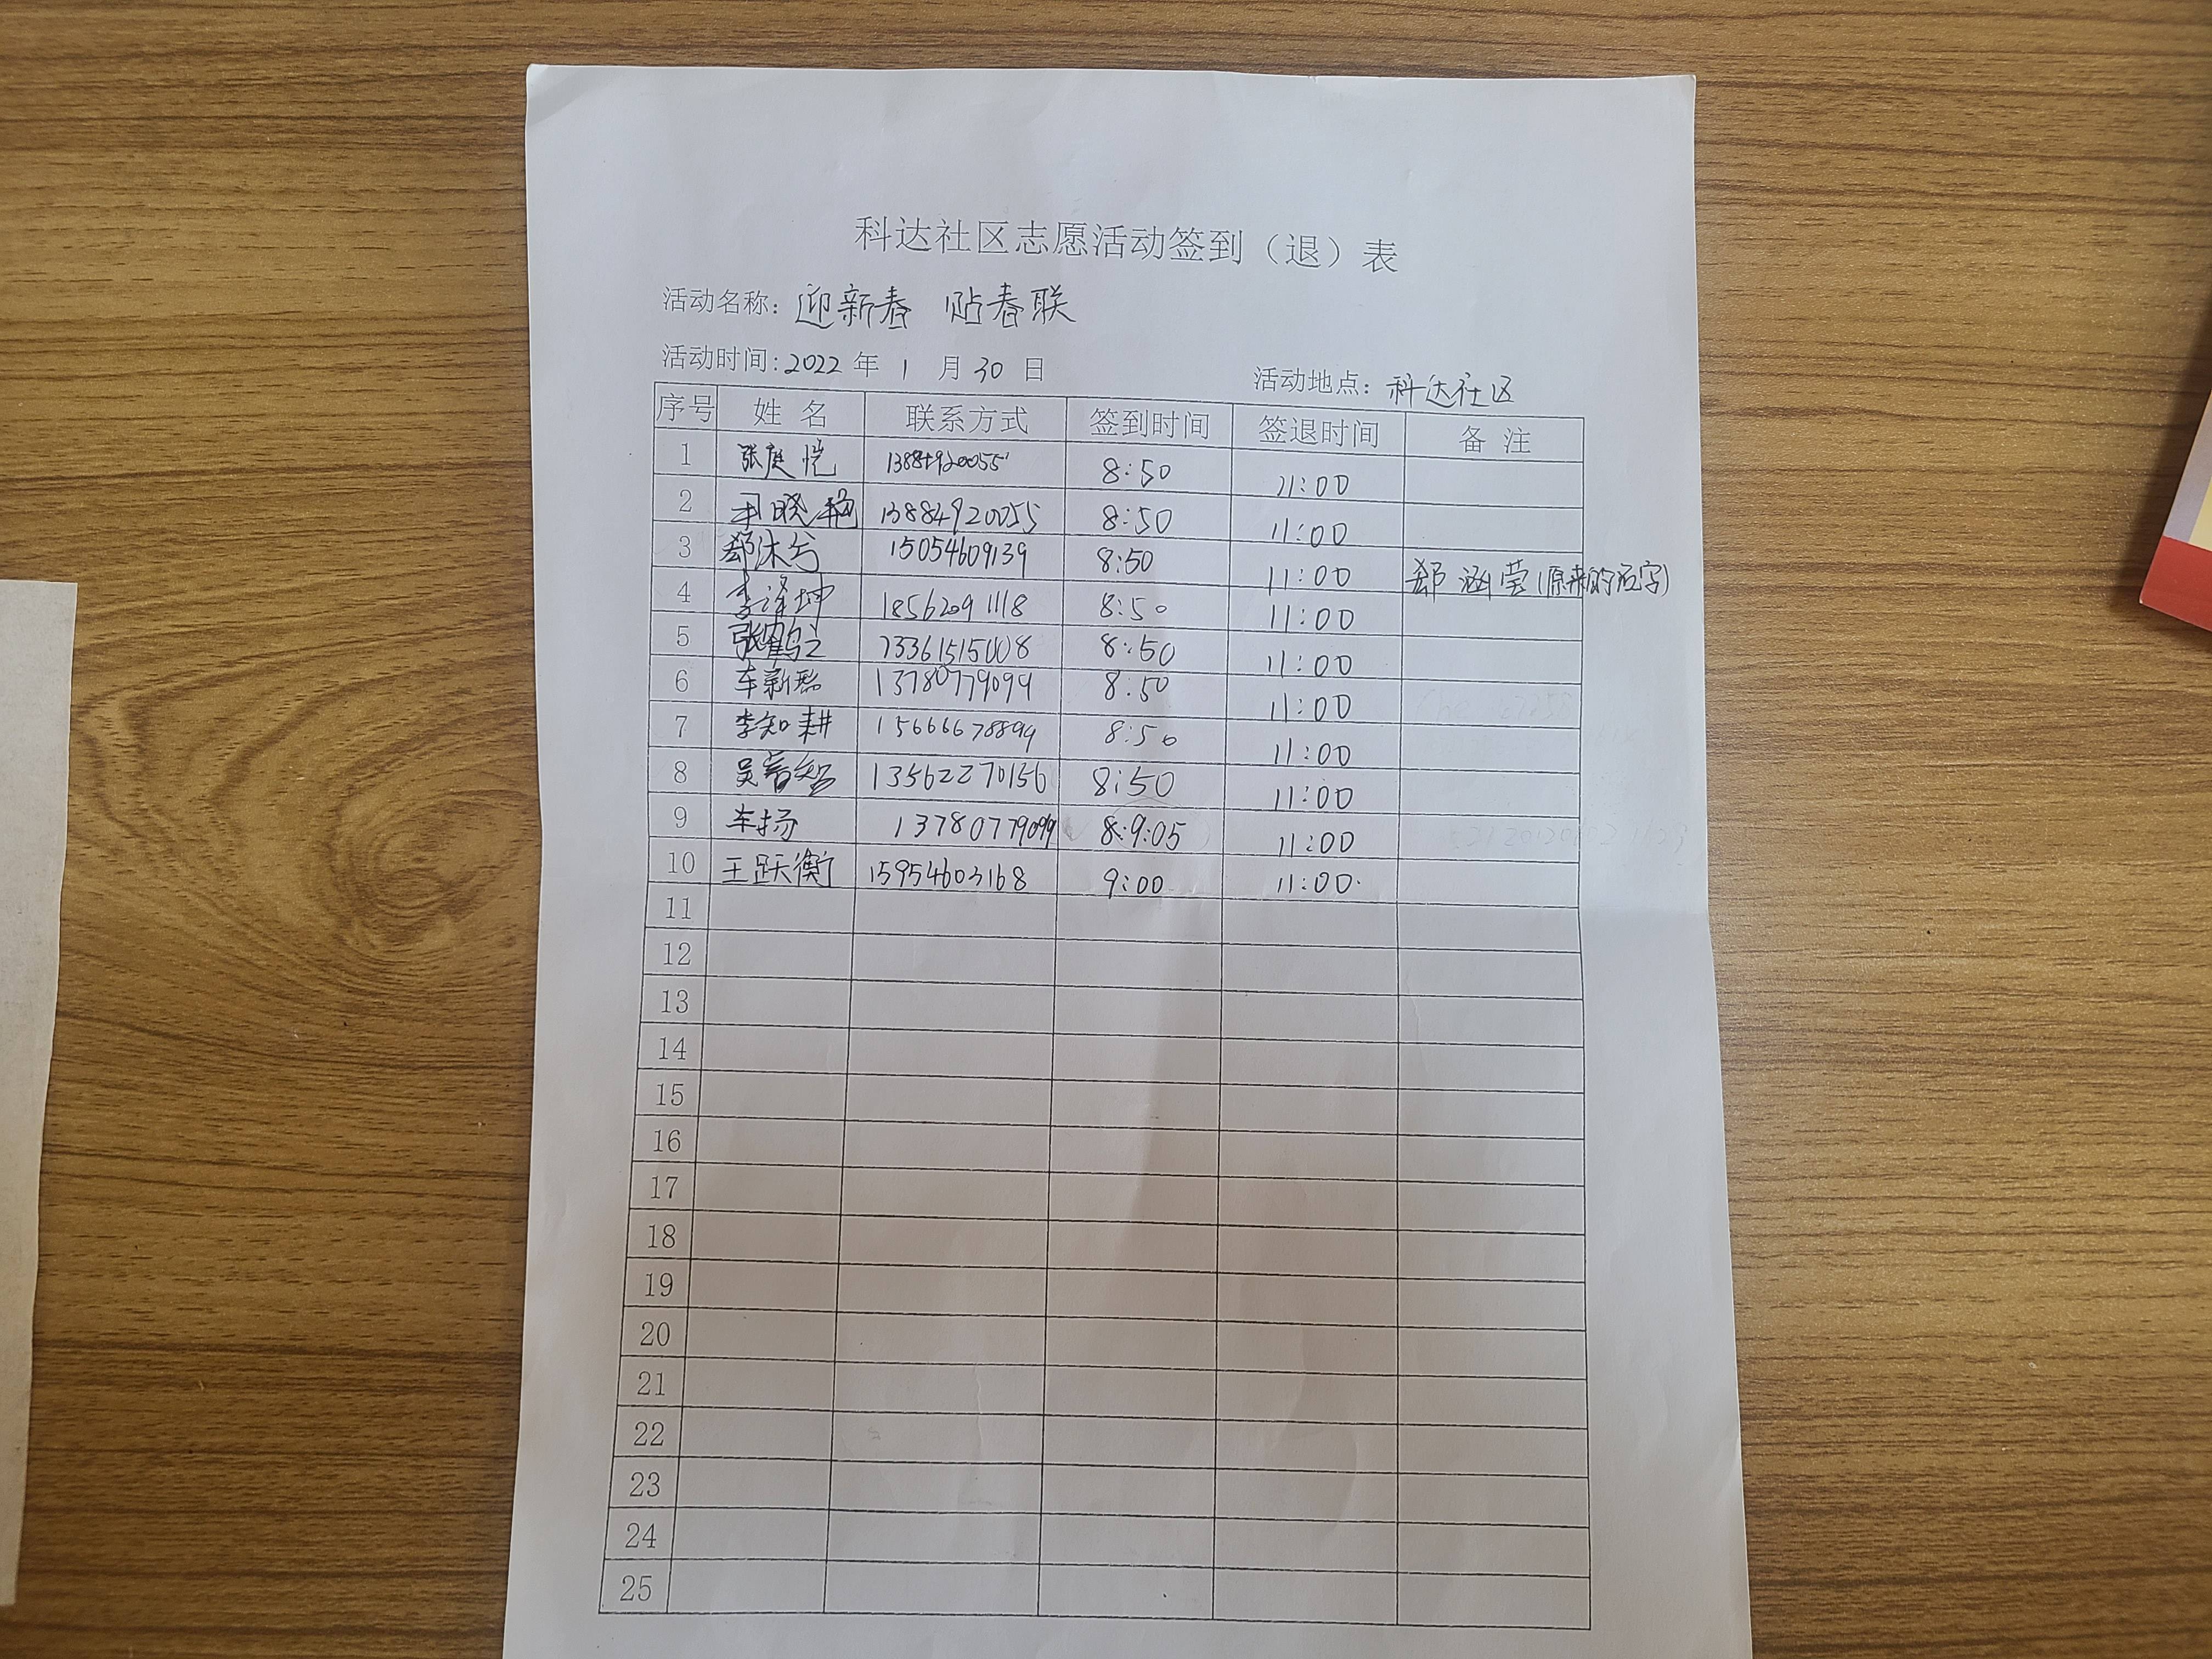 科达社区志愿活动签到（退）表
活动名称：迎新春 贴春联
活动时间：2022 年 1 月 30 日 活动地点：科达社区
序号 姓名 联系方式 签到时间 签退时间 备注
1 张庭恺 13884920055 8:50 11:00
2 晓艳 13884920055 8:50 11:00
3 郄沐兮 15054609139 8:50 11:00 郄涵莹（原来的名字）
4 李泽坤 18562091118 8:50 11:00
5 张鹤之 13361515008 8:50 11:00
6 车新磊 13780779099 8:50 11:00
7 李知耕 15666678899 8:50 11:00
8 吴 13562270156 8:50 11:00
9 车扬 13780779099 8:9:05 11:00
10 王跃衡 15954603168 9:00 11:00
11
12
13
14
15
16
17
18
19
20
21
22
23
24
25